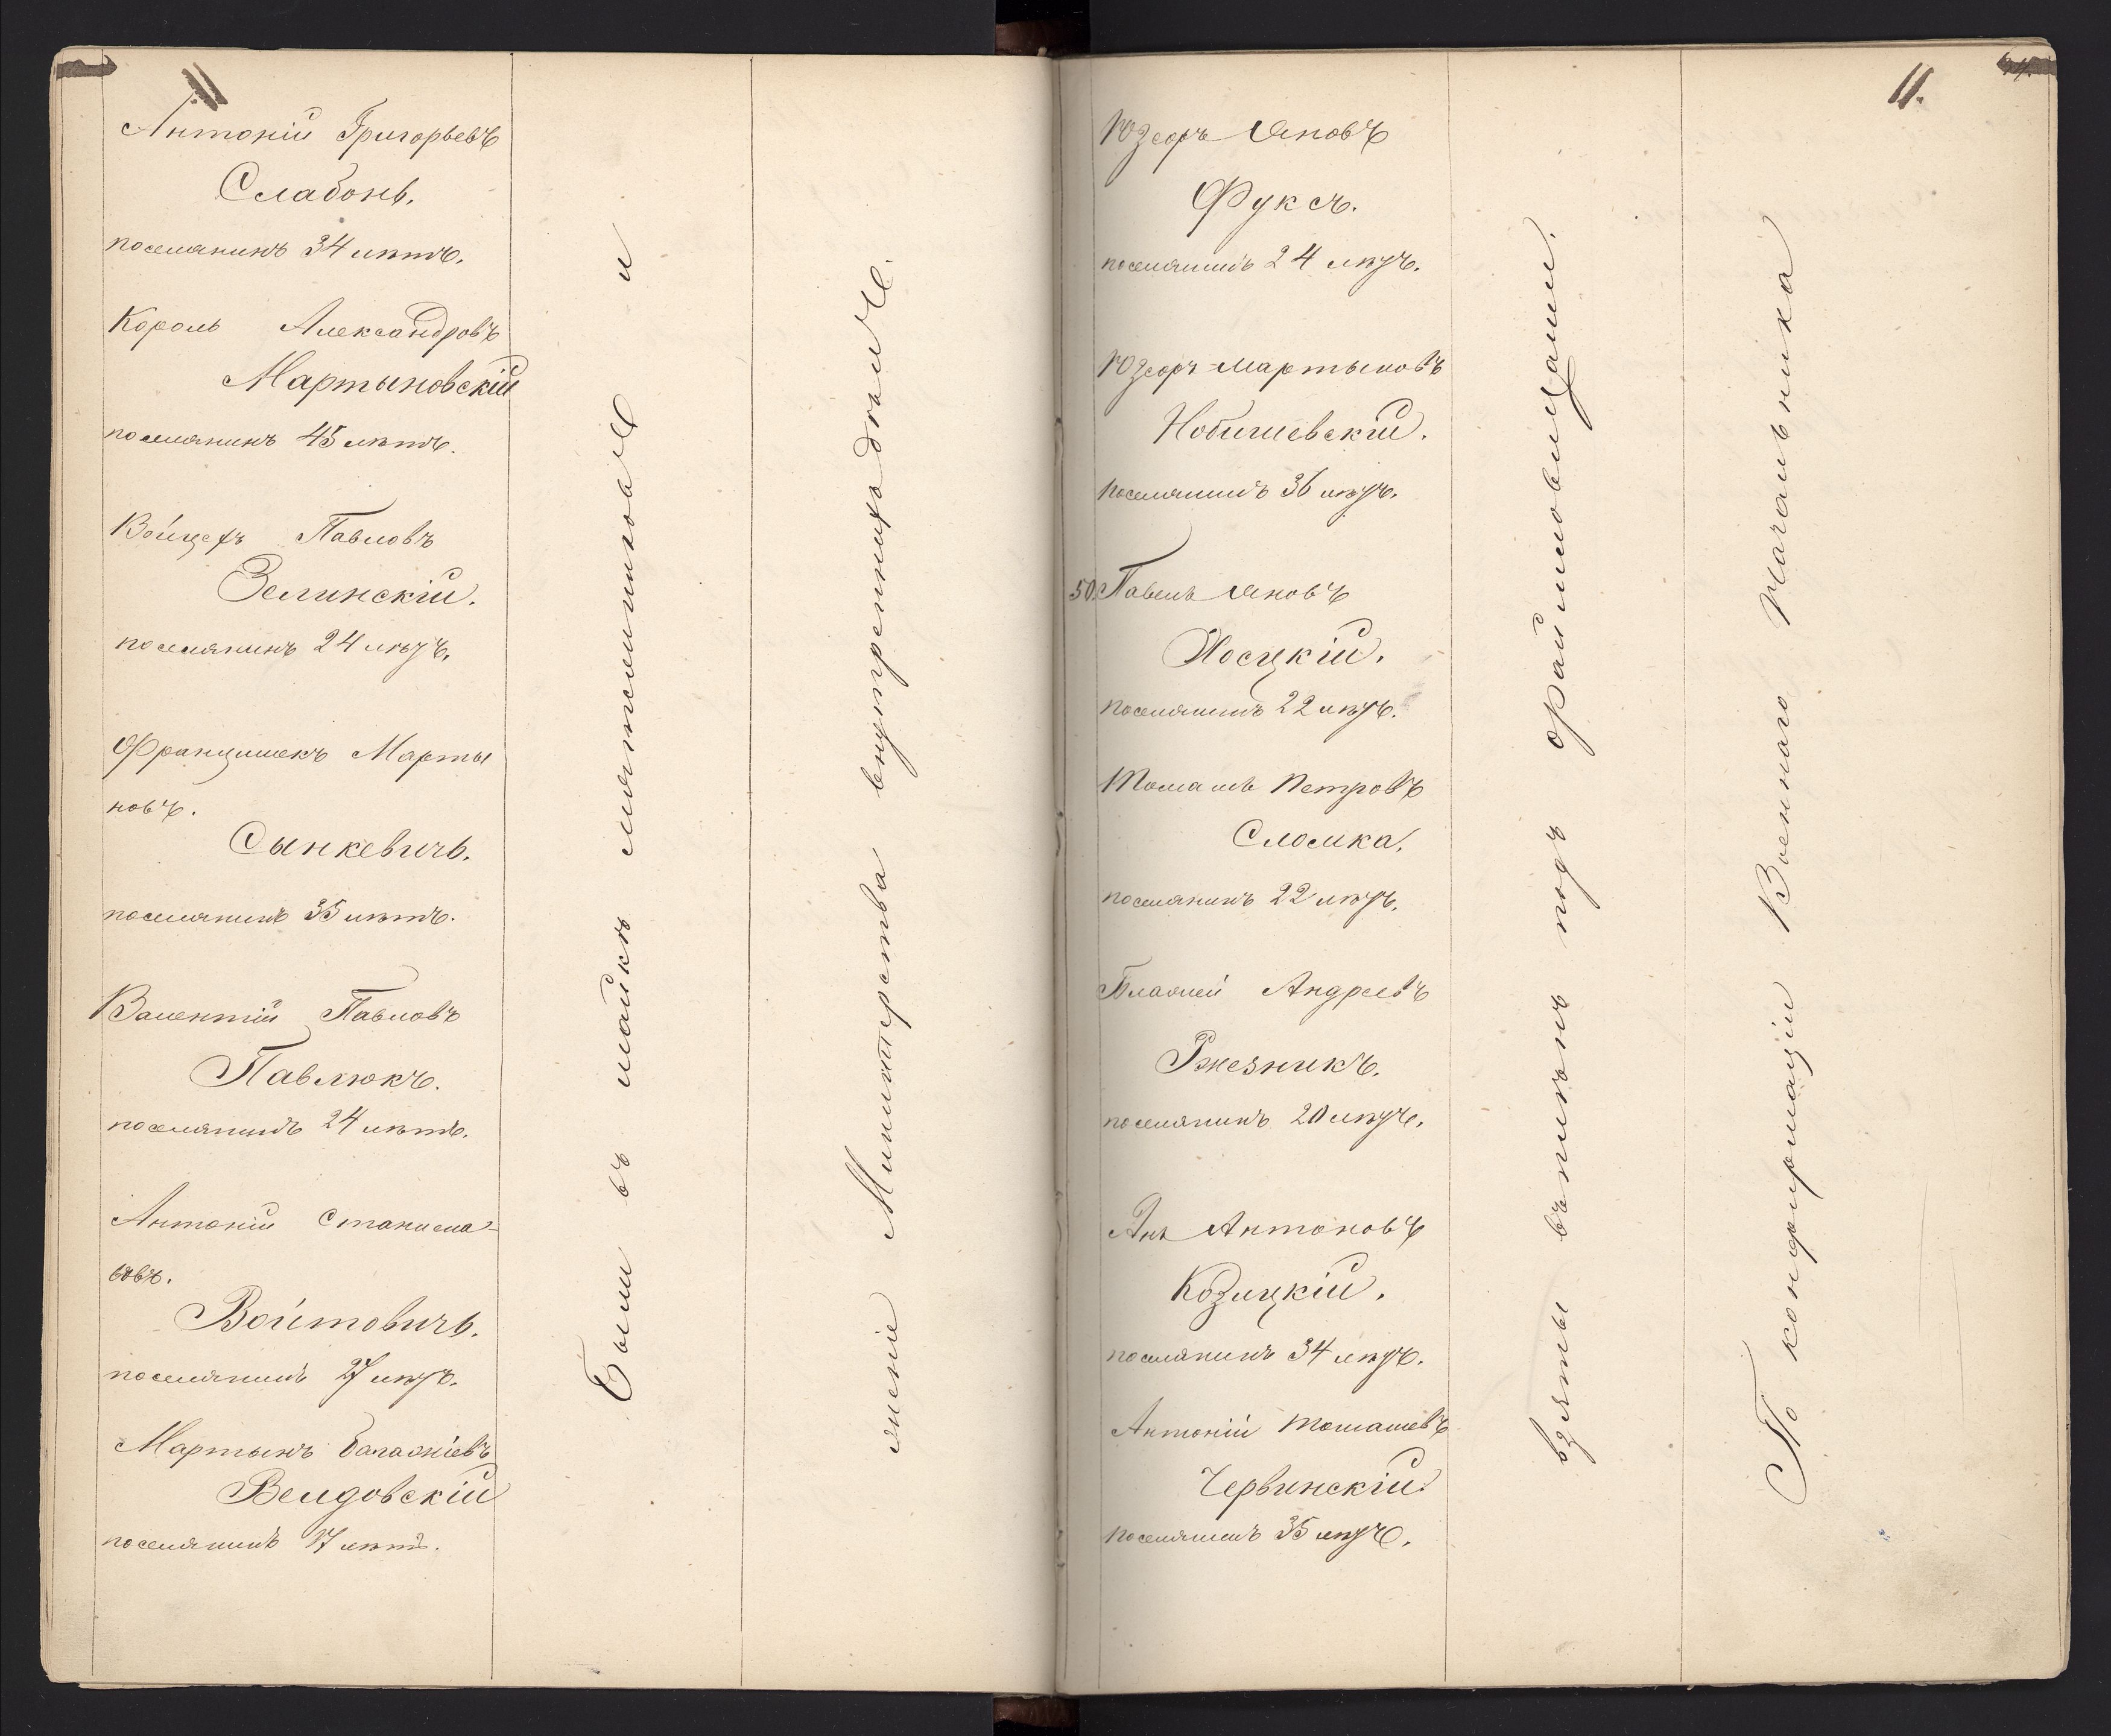 11
Антоній Григорьевъ
Слабонь.
поселянинъ 34 лѣтъ.
Кароль Александровъ
Мартыновскій
поселянинъ 45 лѣтъ.
Войцехъ Павловъ
Зелинскій.
поселянинъ 24 лѣтъ.
Францишекъ Марты
новъ.
Сынкевичь.
поселянинъ 35 лѣтъ.
Валентій Павловъ
Павлюкъ.
поселянинъ 24 лѣтъ.
Антоній Станисла-
вовъ.
Войтовичь.
поселянинъ 27 лѣтъ.
Мартынъ
Велдовскій
поселянинъ 17 лѣтъ.
Были въ шайкѣ мятежниковъ и
женіе Министерства внутреннихъ дѣлъ.
11.
Юзефъ Яновъ
Фуксъ.
поселянинъ 24 лѣтъ.
Юзефъ Мартыновъ
Нобишевскій.
поселянинъ 36 лѣтъ.
50. Павелъ Яновъ
Хосцкій.
поселянинъ 22 лѣтъ.
Томашъ Петровъ
Сломка.
поселянинъ 22 лѣтъ.
Блажей Андреевъ
Ржезникъ.
поселянинъ 20 лѣтъ.
Янъ Антоновъ
Козицкій.
поселянинъ 34 лѣтъ.
Антоній Томашевъ
Червинскій.
поселянинъ 35 лѣтъ.
взяты въ плѣнъ подъ
По конфирмаціи Военнаго Начальника